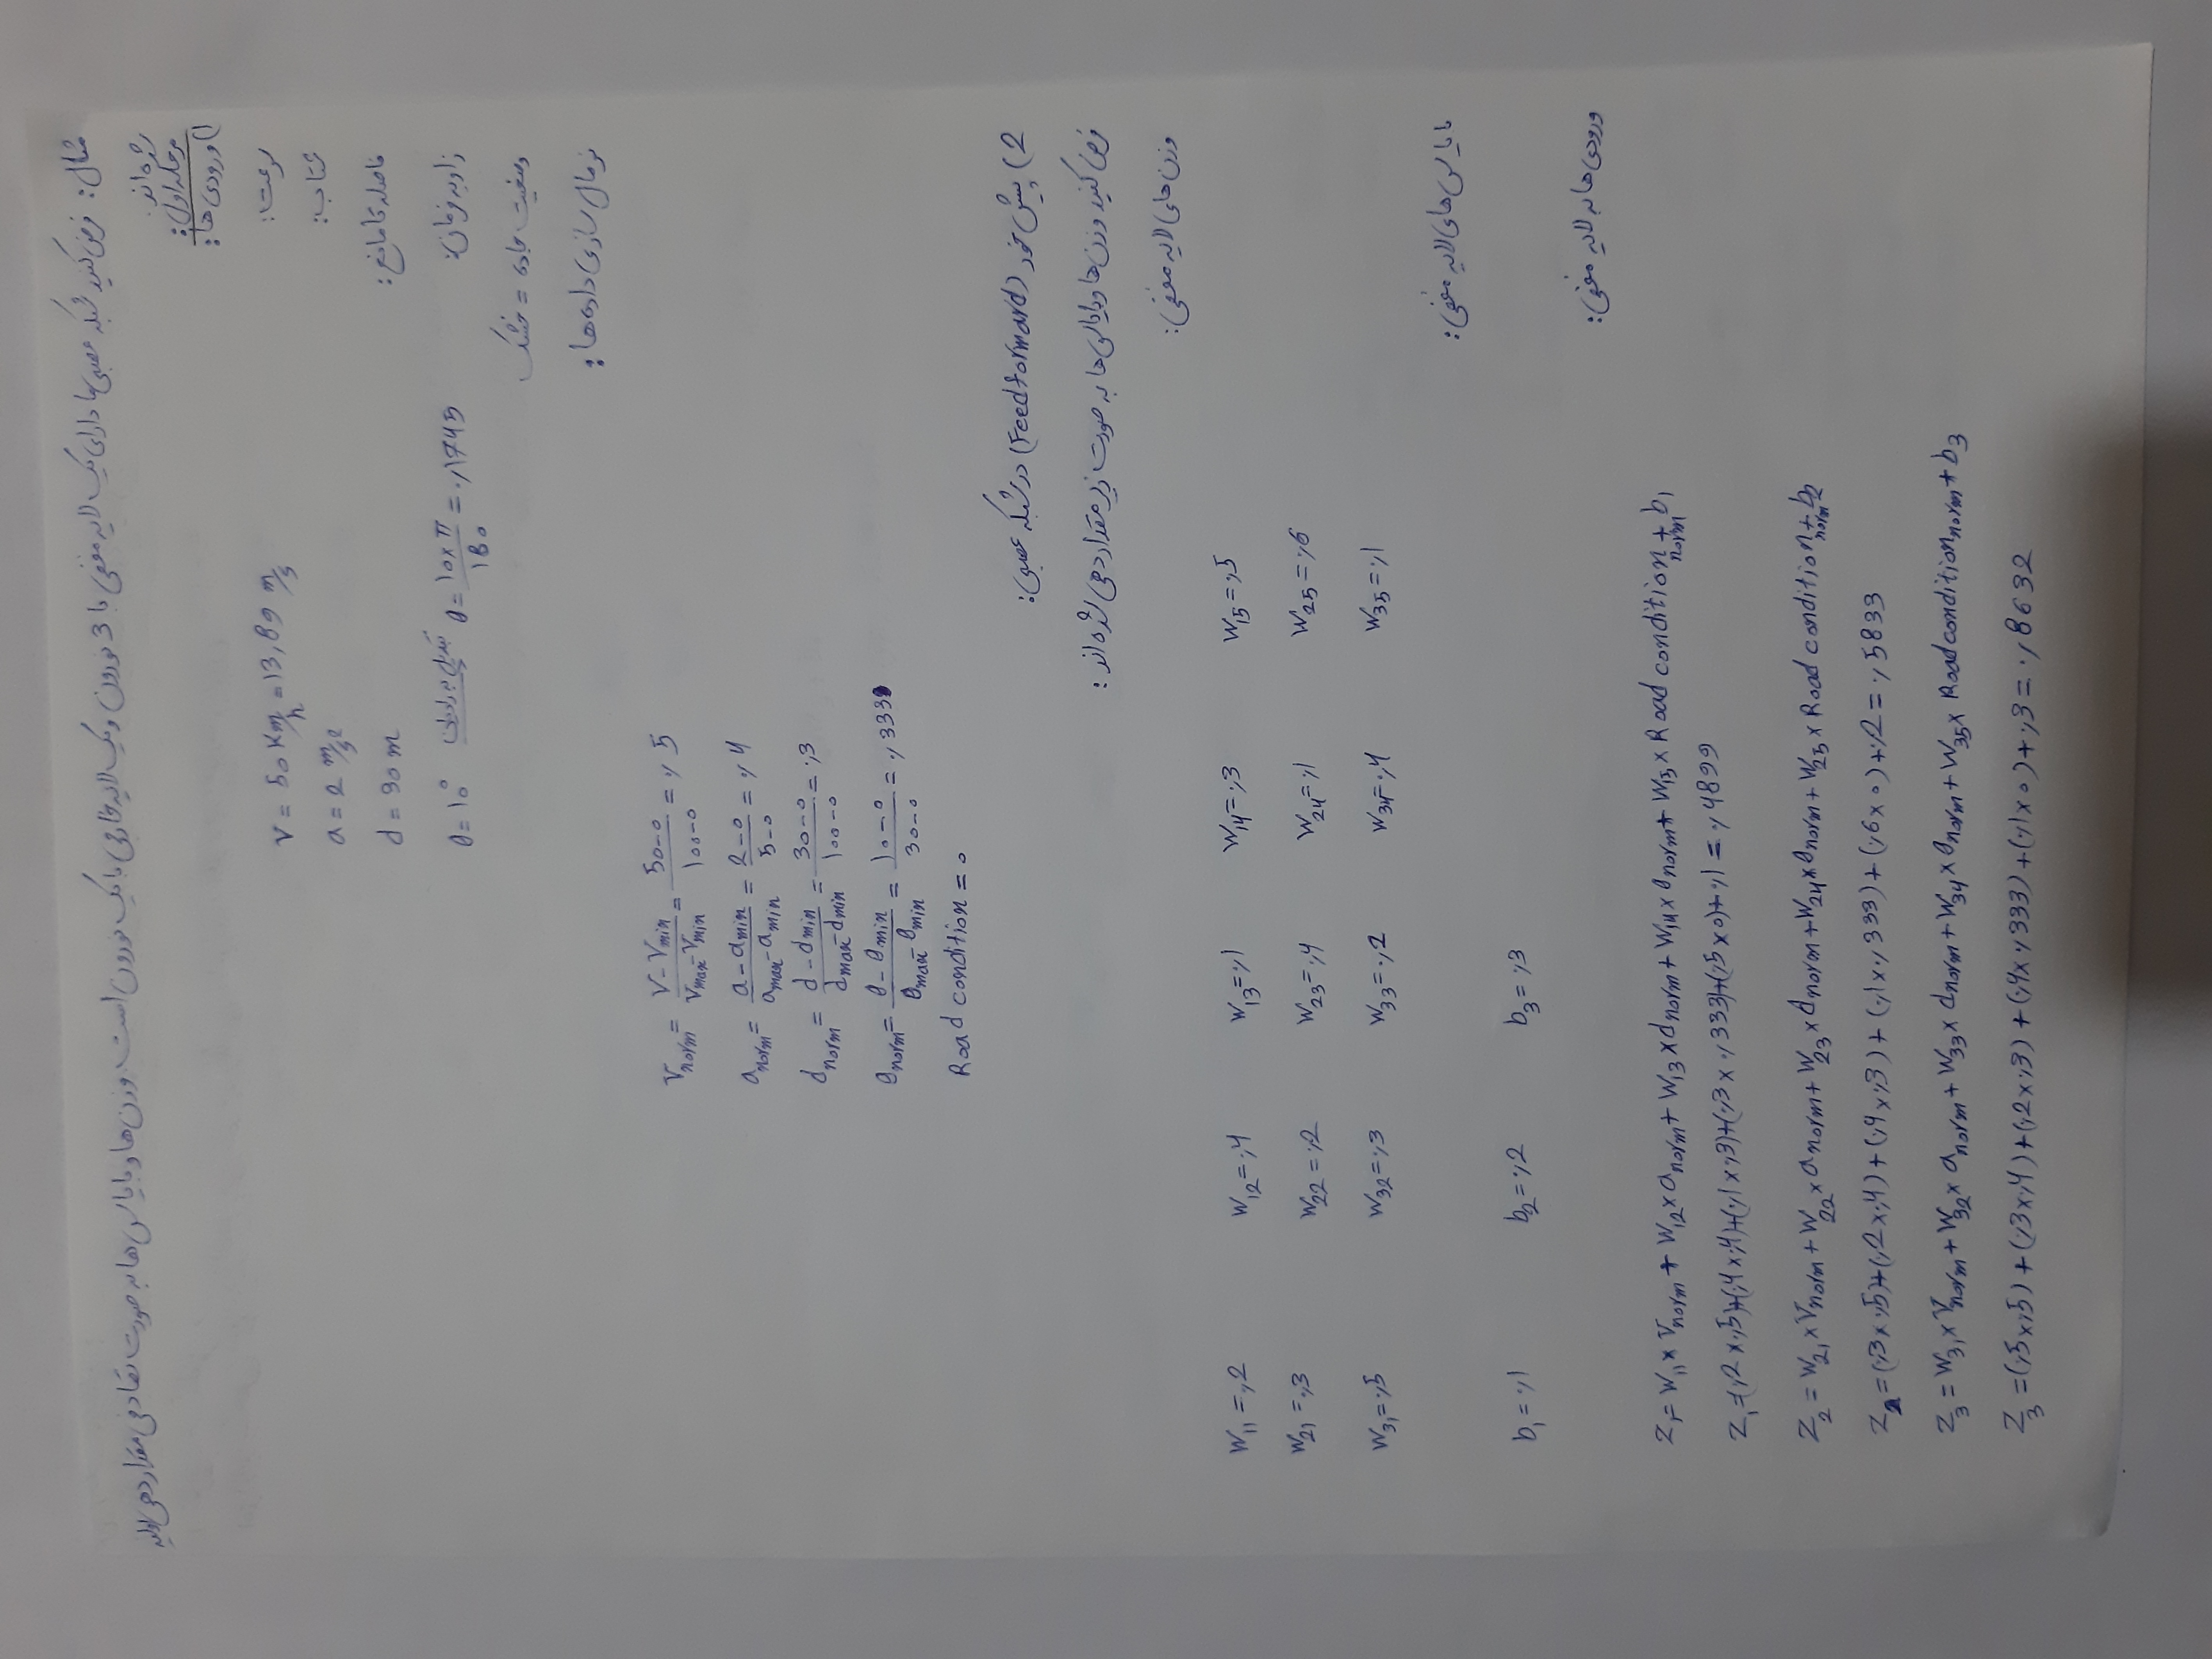 مثال: فرض کنید شبکه عصبی ما دارای یک لایه مخفی با 3 نورون و یک لایه خارجی با یک نورون است. وزن ها و بایاس ها به صورت تصادفی مقدار دهی اولیه
شده اند.
مرحله اول:
1) ورودی ها:
سرعت: V = 50 Km/h = 13,89 m/s
شتاب: a = 2 m/s²
فاصله تا مانع: d = 30 m
زاویه فرمان: θ = 10° تبدیل به رادیان θ = (10×π)/180 = ۰,1745
وضعیت جاده = خشک
نرمال سازی داده ها:
V_norm = (V - V_min)/(V_max - V_min) = (50-0)/(100-0) = ۰,5
a_norm = (a - a_min)/(a_max - a_min) = (2-0)/(5-0) = ۰,4
d_norm = (d - d_min)/(d_max - d_min) = (30-0)/(100-0) = ۰,3
θ_norm = (θ - θ_min)/(θ_max - θ_min) = (10-0)/(30-0) = ۰,333
Road condition = 0
2) پیش خور (Feedforward) در شبکه عصبی:
فرض کنید وزن ها و بایاس ها به صورت زیر مقدار دهی شده اند:
وزن های لایه مخفی:
W11 = ۰,2 W12 = ۰,4 W13 = ۰,1 W14 = ۰,3 W15 = ۰,5
W21 = ۰,3 W22 = ۰,2 W23 = ۰,4 W24 = ۰,1 W25 = ۰,6
W31 = ۰,5 W32 = ۰,3 W33 = ۰,2 W34 = ۰,4 W35 = ۰,1
بایاس های لایه مخفی:
b1 = ۰,1 b2 = ۰,2 b3 = ۰,3
ورودی ها به لایه مخفی:
Z1 = W11 × V_norm + W12 × a_norm + W13 × d_norm + W14 × θ_norm + W15 × Road condition_norm + b1
Z1 = (۰,2×۰,5)+(۰,4×۰,4)+(۰,1×۰,3)+(۰,3×۰,333)+(۰,5×0)+۰,1 = ۰,4899
Z2 = W21 × V_norm + W22 × a_norm + W23 × d_norm + W24 × θ_norm + W25 × Road condition_norm + b2
Z2 = (۰,3×۰,5)+(۰,2×۰,4)+(۰,4×۰,3)+(۰,1×۰,333)+(۰,6×0)+۰,2 = ۰,5833
Z3 = W31 × V_norm + W32 × a_norm + W33 × d_norm + W34 × θ_norm + W35 × Road condition_norm + b3
Z3 = (۰,5×۰,5)+(۰,3×۰,4)+(۰,2×۰,3)+(۰,4×۰,333)+(۰,1×0)+۰,3 = ۰,8632